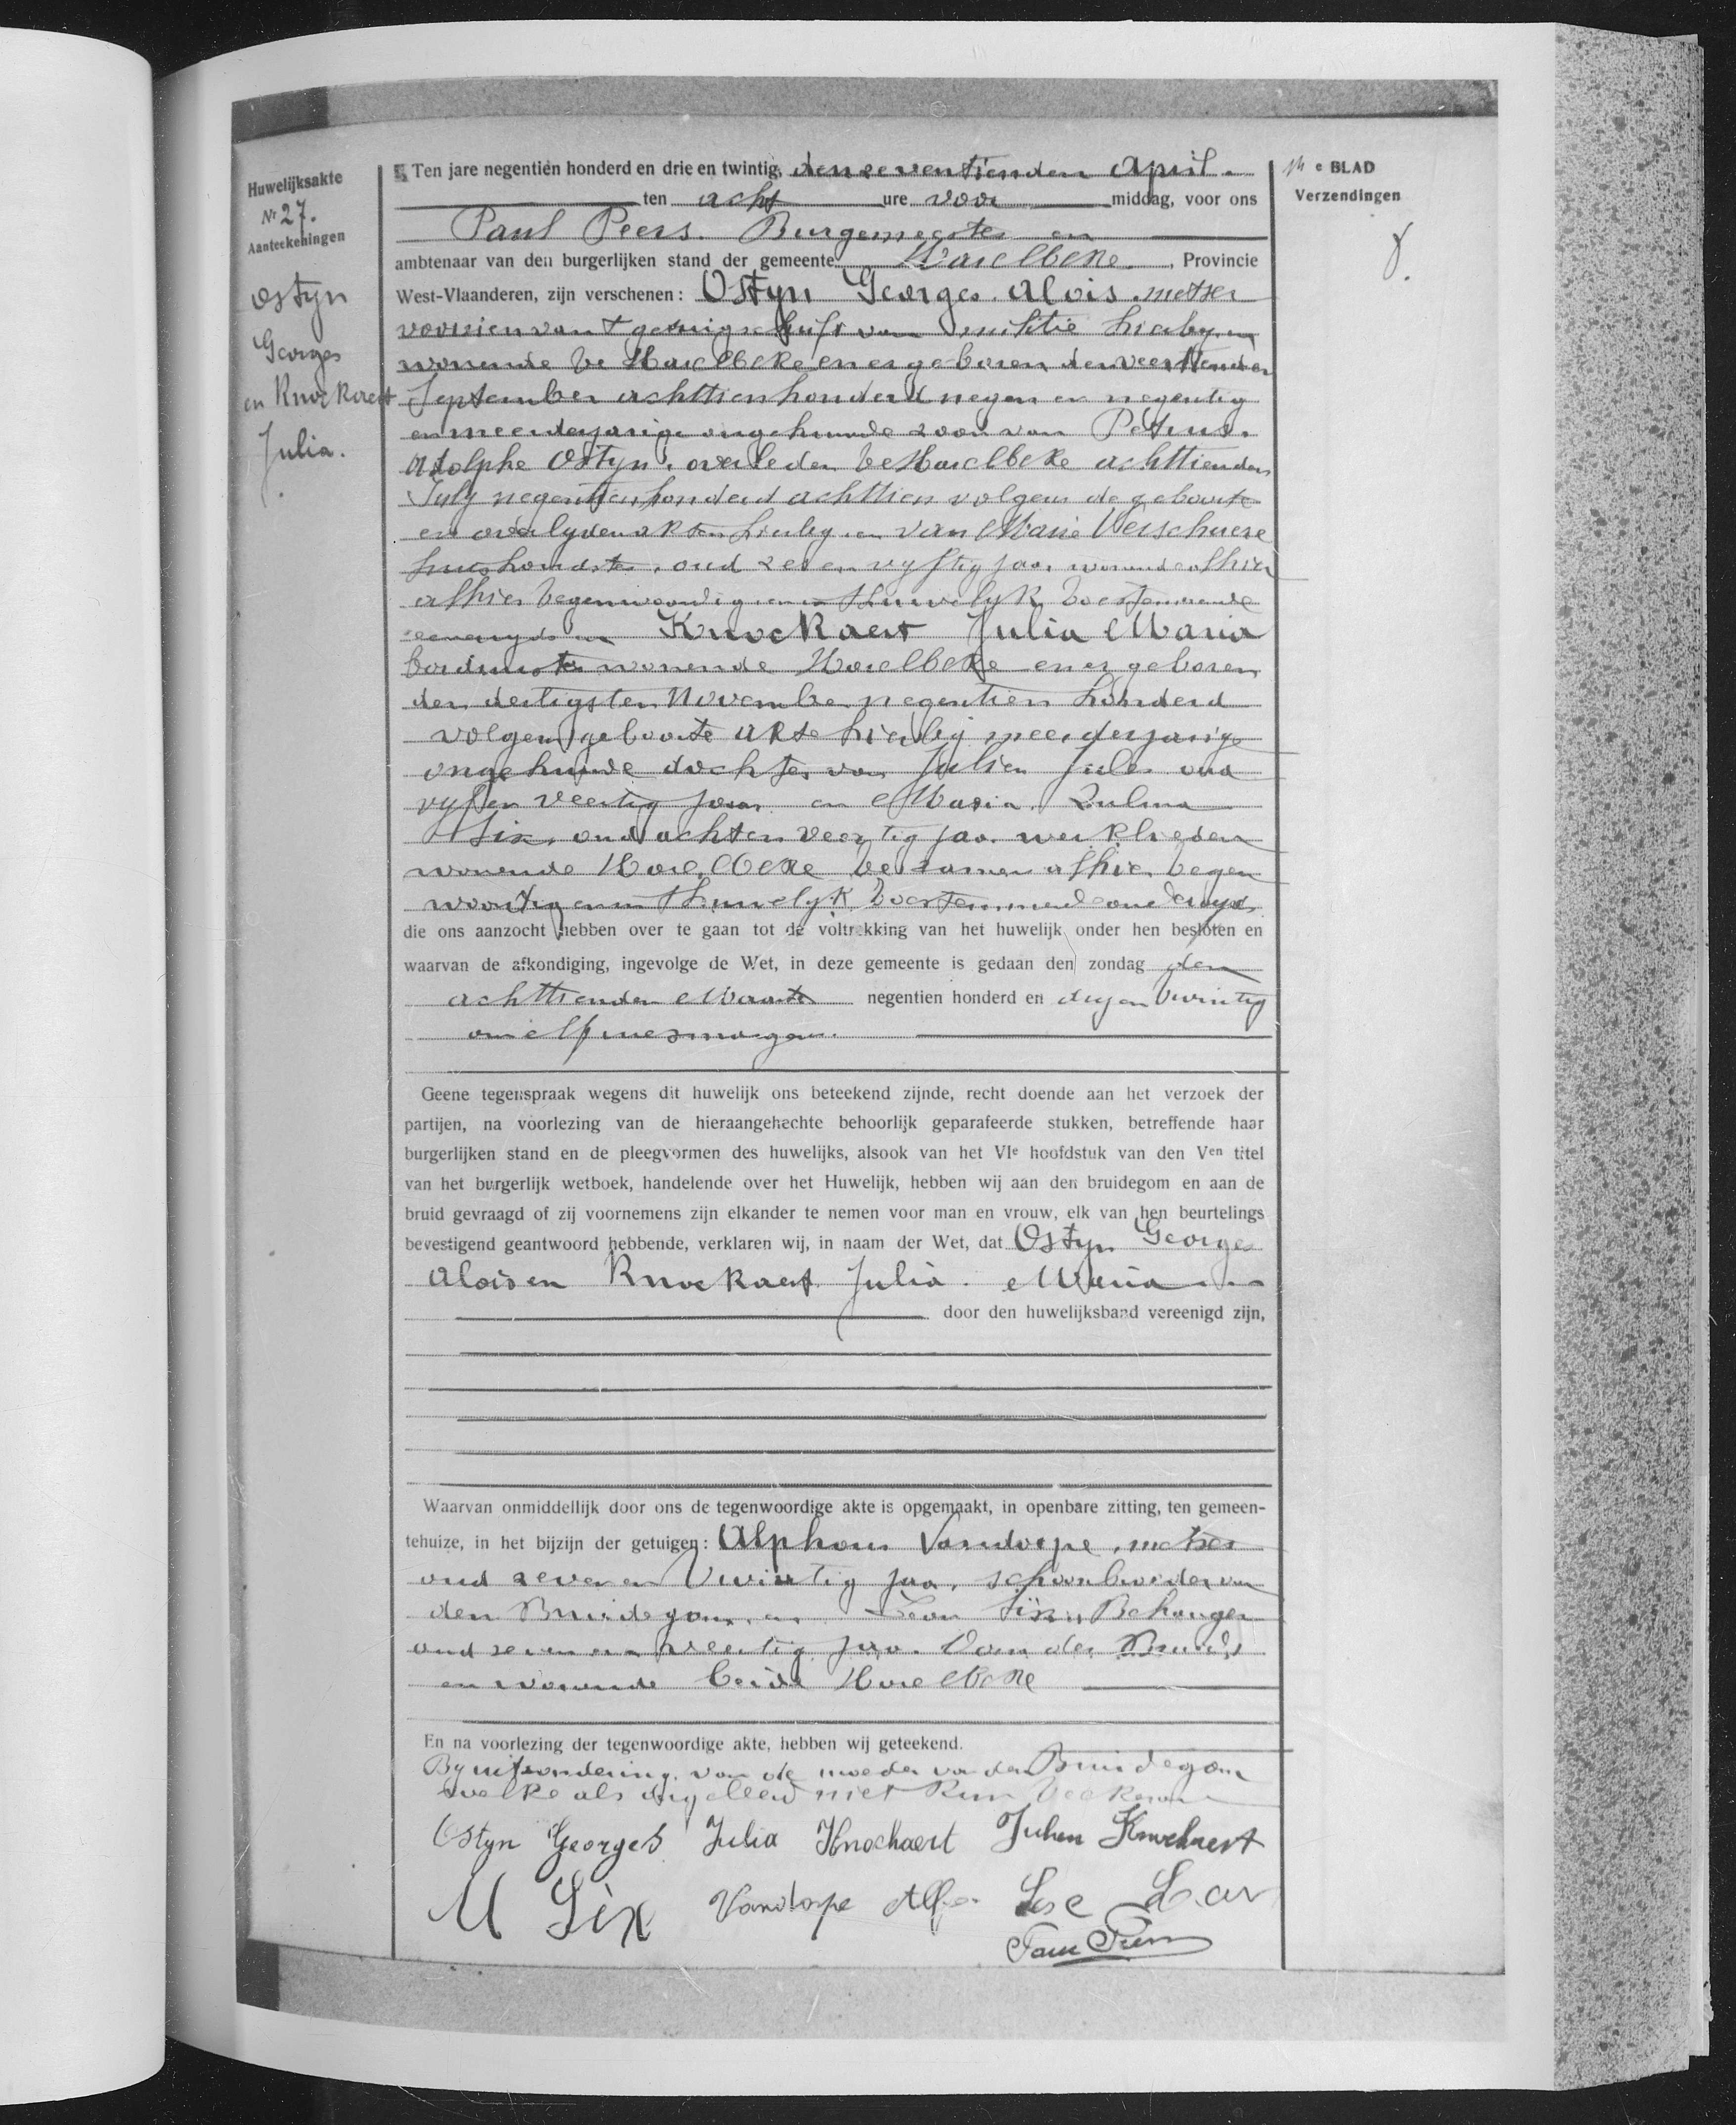 Huwelijksakte
Nr 27.
Aanteekeningen
Ostyn
Georges
en Knockaert
Julia.
Ten jare negentien honderd en drie en twintig, den zeventienden April.
ten acht ure voor middag, voor ons
Paul Peers. Burgemeester en
ambtenaar van den burgerlijken stand der gemeente Harelbeke, Provincie
West-Vlaanderen, zijn verschenen: Ostyn Georges Alois, metser
voorzien van t getuigschrift van militie hierby en
wonende te Harelbeke en er geboren den veertienden
September achttien honderd negen en negentig
en meerderjarige ongehuwde zoon van Petrus
Adolphe Ostyn, overleden te Harelbeke achttienden
July negentien honderd achttien volgens de geboorte
en overlyden akten hierby en van Marie Verschuere
huishoudster, oud zes en vyftig jaar wonende alhier
alhier tegenwoordig en in t huwelyk toestemmende
eenerzyds en Knockaert Julia Maria
wonende Harelbeke en er geboren
den dertigsten November negentien honderd
volgens geboorte akte hierby meerderjarige
ongehuwde dochter van Julien Jules oud
vyf en veertig jaar en Maria Zulma
Six, oud acht en veertig jaar werklieden
wonende Harelbeke te zamen alhier tegen
woordig en in t huwelyk toestemmende anderzyds
die ons aanzocht hebben over te gaan tot de voltrekking van het huwelijk onder hen besloten en
waarvan de afkondiging, ingevolge de Wet, in deze gemeente is gedaan den zondag den
achttienden Maart negentien honderd en dry en twintig
om elf ure smorgens.
Geene tegenspraak wegens dit huwelijk ons beteekend zijnde, recht doende aan het verzoek der
partijen, na voorlezing van de hieraangehechte behoorlijk geparafeerde stukken, betreffende haar
burgerlijken stand en de pleegvormen des huwelijks, alsook van het VIe hoofdstuk van den Ven titel
van het burgerlijk wetboek, handelende over het Huwelijk, hebben wij aan den bruidegom en aan de
bruid gevraagd of zij voornemens zijn elkander te nemen voor man en vrouw, elk van hen beurtelings
bevestigend geantwoord hebbende, verklaren wij, in naam der Wet, dat Ostyn George
Alois en Knockaert Julia Maria
door den huwelijksband vereenigd zijn,
Waarvan onmiddellijk door ons de tegenwoordige akte is opgemaakt, in openbare zitting, ten gemeen-
tehuize, in het bijzijn der getuigen: Alphons Vandorpe, metser
oud zeven en twintig jaar, schoonbroeder van
den Bruidegom, en Leon Six, Behanger
oud zeven en veertig jaar. Oom der Bruid,
en wonende beide Harelbeke
En na voorlezing der tegenwoordige akte, hebben wij geteekend.
By uitzondering van de moeder van den Bruidegom
welke als ongelleerd niet kan teekenen
Ostyn Georges Julia Knockaert Julien Knockaert
M Six Vandorpe Alp.
Paul Peers
e BLAD
Verzendingen